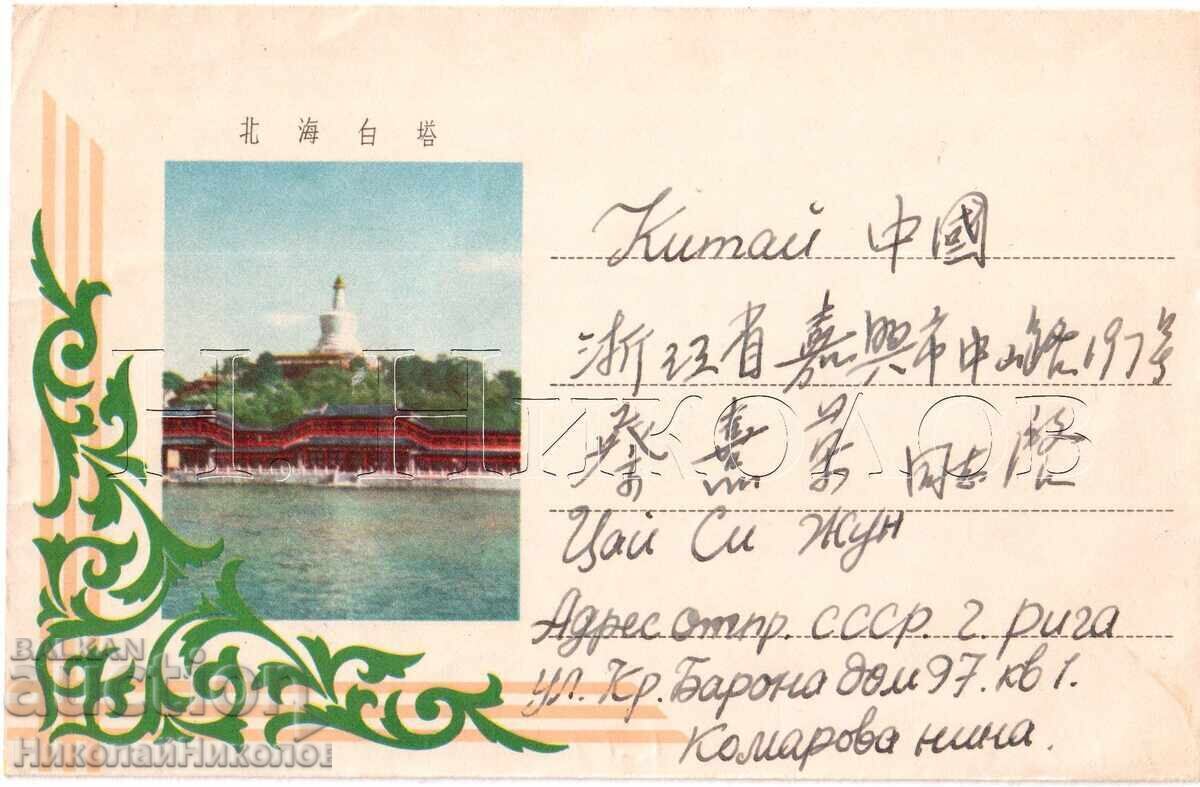 北海白塔
Китай 中國
浙江省嘉興市中山路197号
蔡喜荣 同志 启
Цай Си Жун
Адрес отпр. СССР. г. Рига
ул. Кр. Барона дом 97. кв 1.
Комарова Нина.
Н. Николов
BALKAN
auction
НиколайНиколов